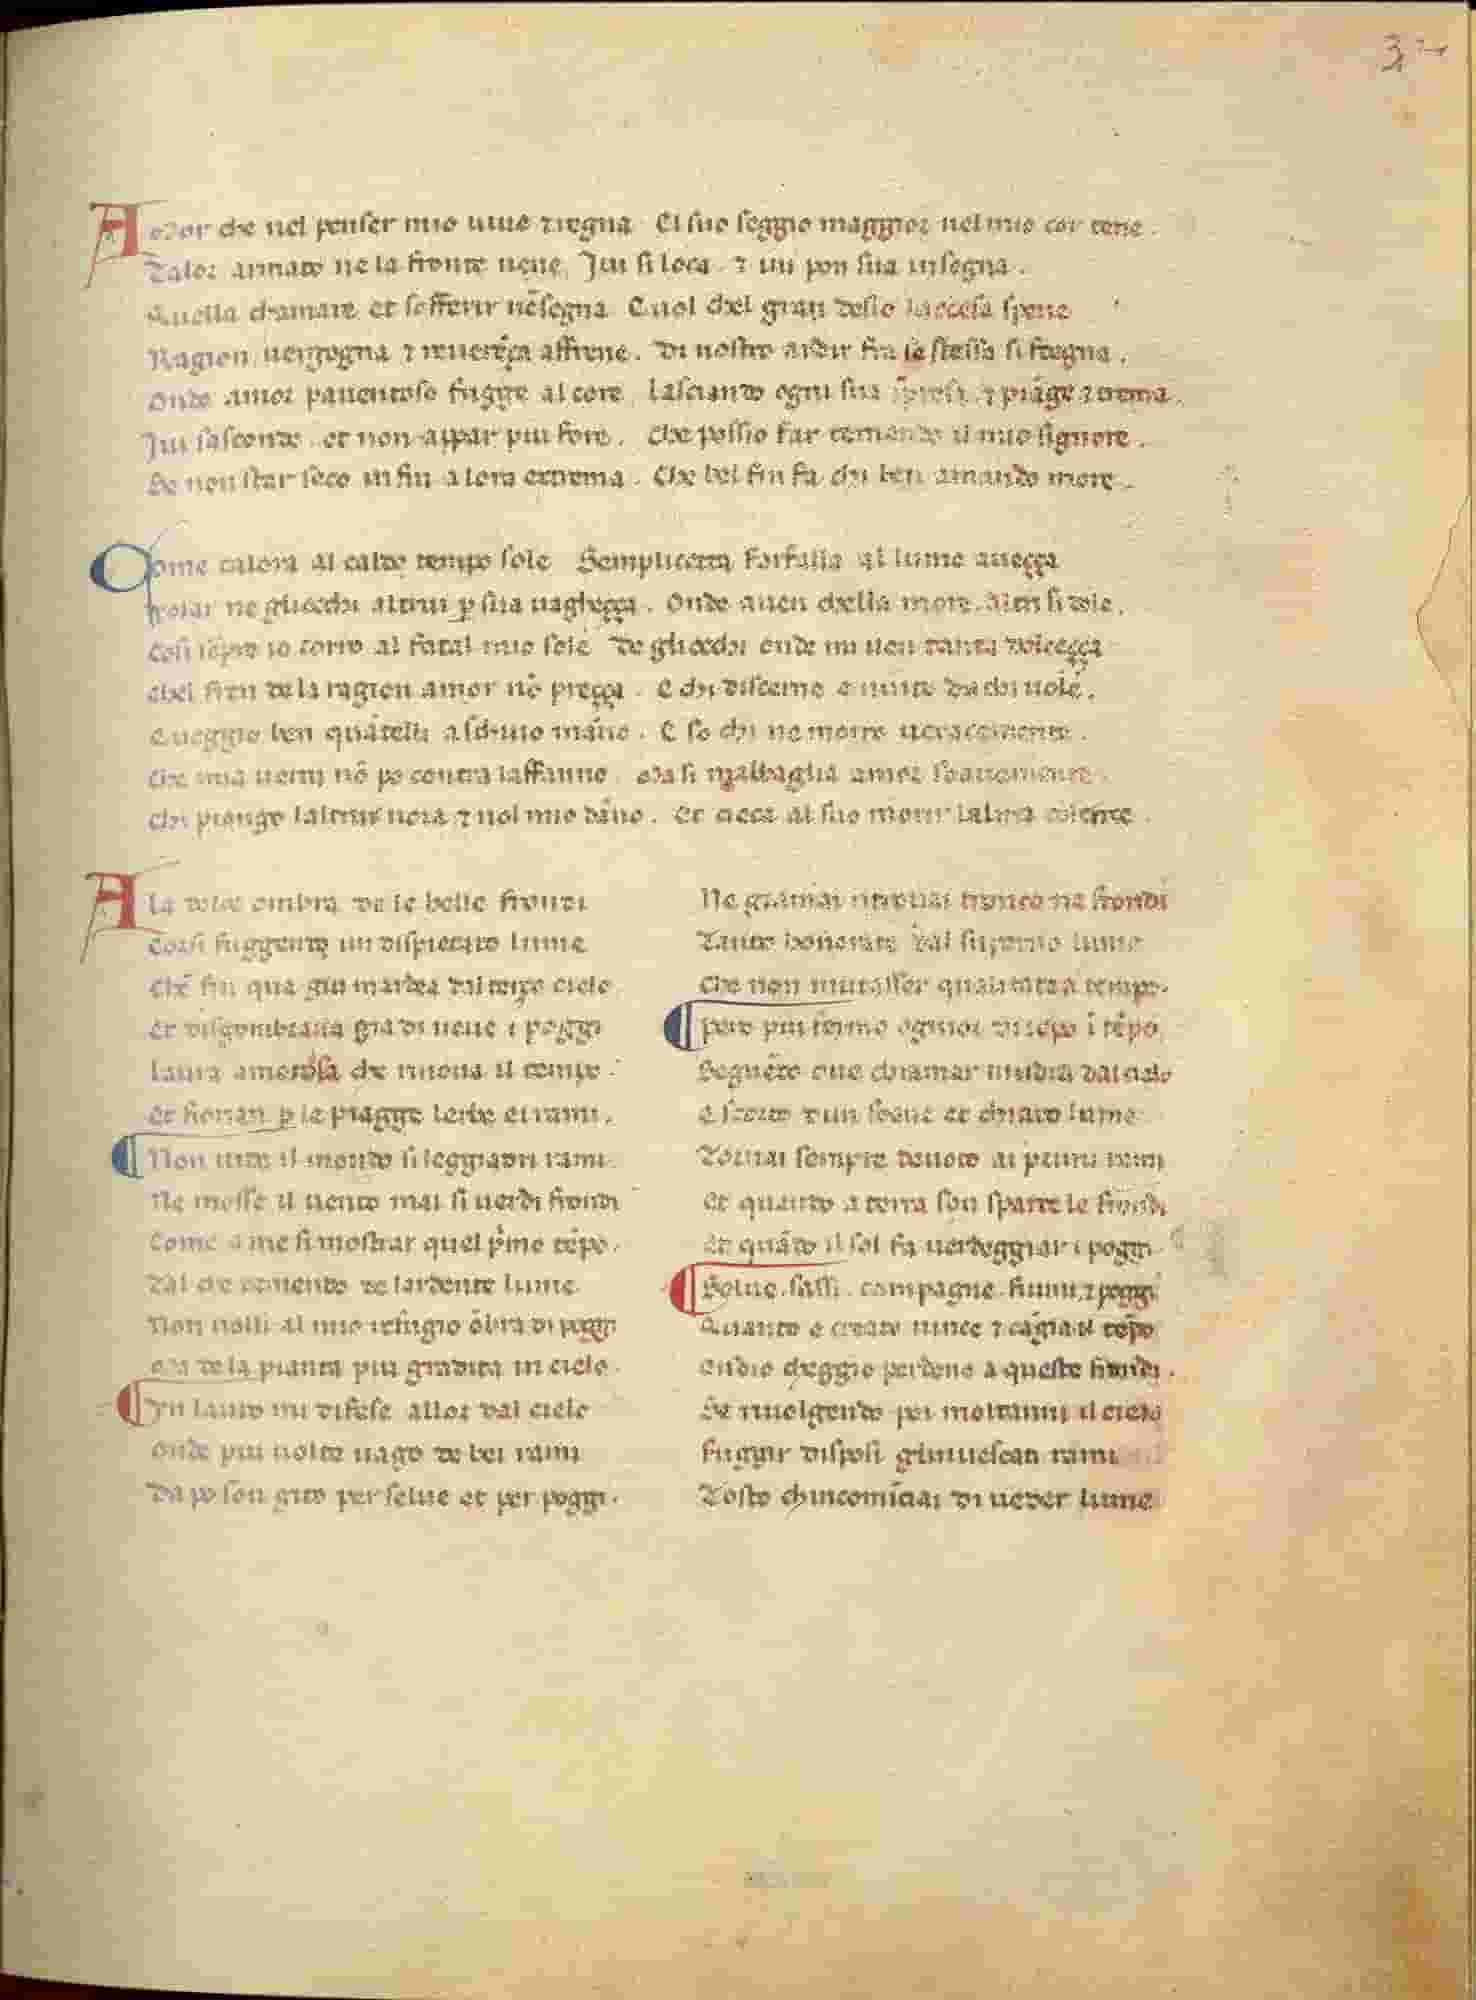 32
Amor che nel penser mio uiue ⁊ regna. El suo seggio maggior nel mio cor tene.
Talor armato ne la fronte uene. Iui si loca. ⁊ iui pon sua insegna.
Quella chamare et sofferir nēsegna. E uol chel gran desio laccesa spene
Ragion, uergogna ⁊ reuerēça affrene. Di nostro ardir fra se stessa si sdegna.
Onde amor pauentoso fugge al core. lasciando ogni sua īpresa. ⁊ piāge ⁊ trema.
Iui sasconde. et non appar piu fore. Che possio far temendo il mio signore.
Se non star seco in fin a lora extrema. Che bel fin fa chi ben amando more.
Come talora al caldo tempo sole Semplicetta farfalla al lume aueçça
Volar ne gliocchi altrui ꝑ sua uagheçça. Onde auen chella more. altri si dole.
Cosi sēpre io corro al fatal mio sole De gliocchi onde mi uen tanta dolceçça
Chel fren de la ragion amor nō preçça. E chi discerne e uinto da chi uole.
E ueggio ben quātelli a schiuo māno. E so chi ne morro ueracemente.
Che mia uertu nō po contra laffanno. Ma si mabbaglia amor soauemente.
Chi piango laltrui noia ⁊ nol mio dāno. Et cieca al suo morir lalma consente.
A la dolce ombra de le belle frondi
Corsi fuggendo un dispietato lume
Che fin qua giu mardea dal terço cielo
Et disgombraua gia di neue i poggi
Laura amorosa che rinoua il tempo.
Et fiorian ꝑ le piagge lerbe et i rami.
Non uide il mondo si leggiadri rami.
Ne mosse il uento mai si uerdi frondi
Come a me si mostrar quel pͥmo tēpo.
Tal che temendo de lardente lume
Non uolsi al mio refugio ōbra di poggi
Ma de la pianta piu gradita in cielo.
Vn lauro mi difese allor dal cielo
Onde piu uolte uago de bei rami
Da po son gito per selue et per poggi.
Ne giamai ritrouai tronco ne frondi
Tanto honorate dal superno lume
Che non mutasser qualitate a tempo.
Pero piu fermo ognior di tēpo ī tēpo
Seguēdo oue chiamar mudia dal cielo
E scorto dun soaue et chiaro lume
Tornai sempre deuoto ai primi rami
Et quando a terra son sparte le frondi
Et quādo il sol fa uerdeggiar i poggi
Selue. sassi. campagne. fiumi. ⁊ poggi
Quanto e creato uince ⁊ cāgia il tēpo
Ondio cheggio perdono a queste frondi.
Se riuolgendo poi moltanni il cielo
Fuggir disposi gliinuescati rami
Tosto chincomīciai di ueder lume